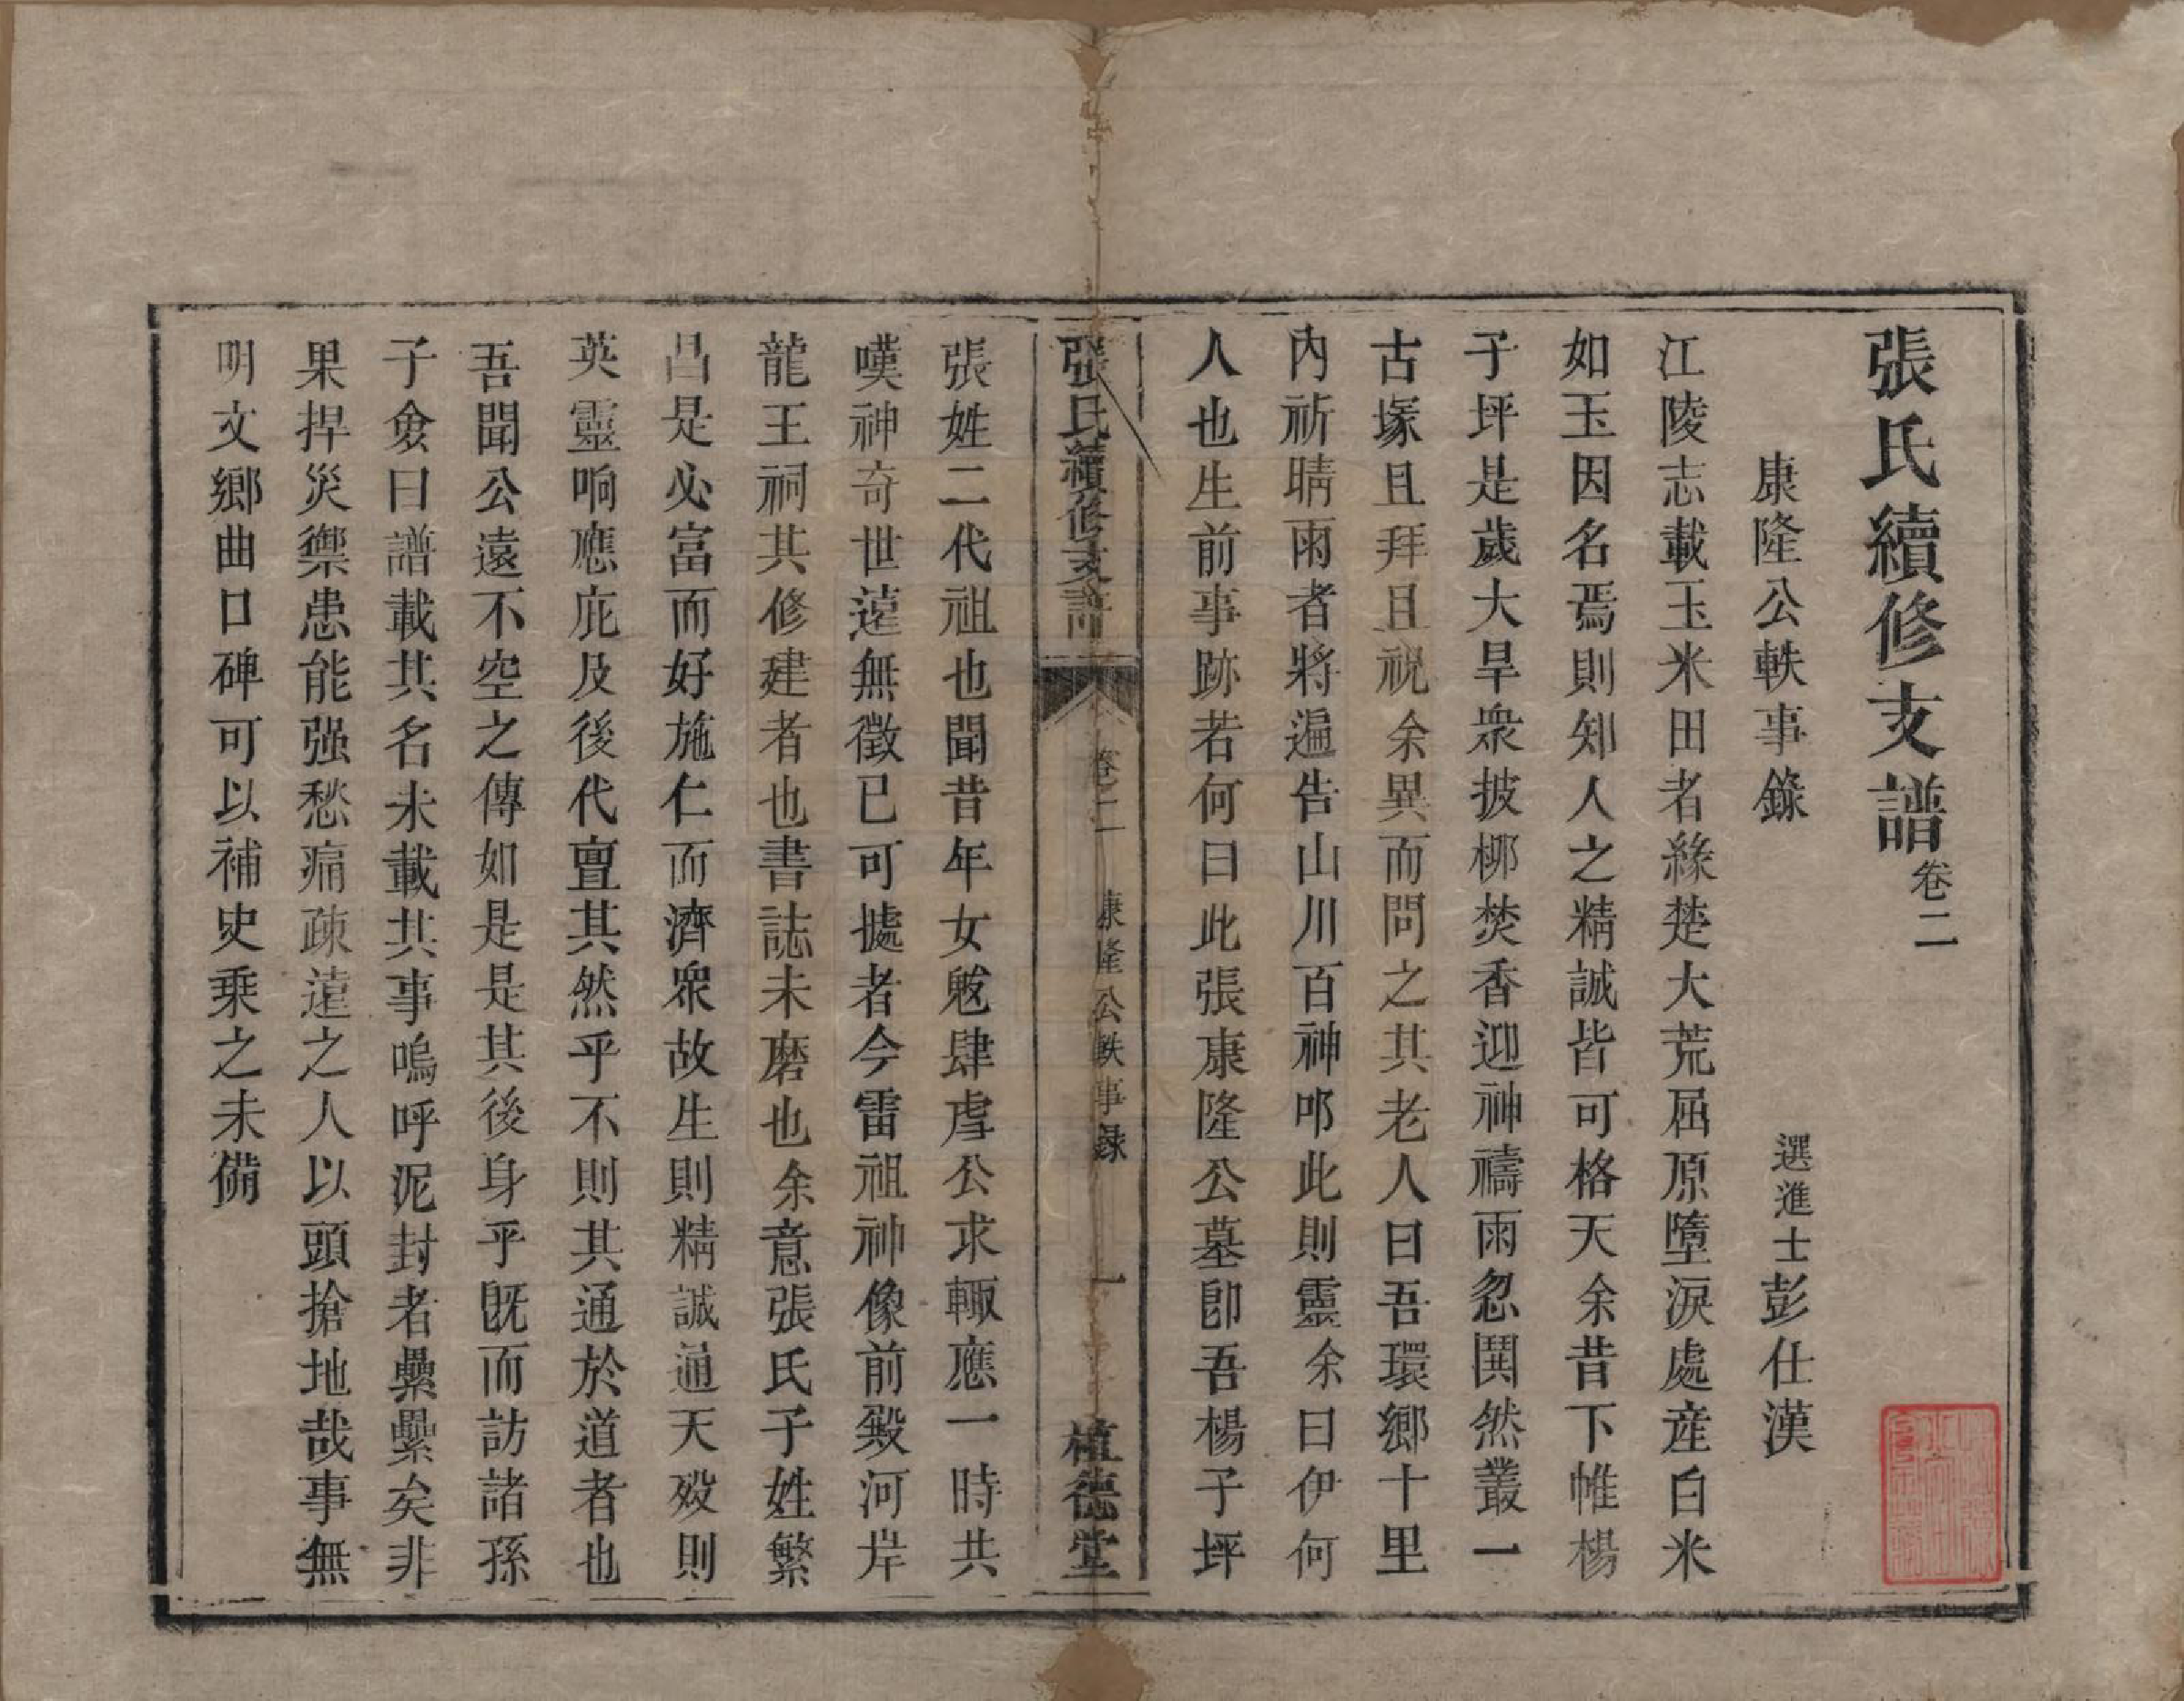 張氏續修支譜卷二
康隆公軼事錄
選進士彭仕漢
江陵志載玉米田者緣楚大荒屈原墮淚處産白米
如玉因名焉則知人之精誠皆可格天余昔下帷楊
子坪是歲大旱衆披柳焚香迎神禱雨忽鬨然叢一
古塚且拜且祝余異而問之其老人曰吾環鄉十里
內祈晴雨者將遍告山川百神叩此則靈余曰伊何
人也生前事跡若何曰此張康隆公墓卽吾楊子坪
張氏續修支譜
卷二
康隆公軼事錄
一
植德堂
張姓二代祖也聞昔年女魃肆虐公求輙應一時共
嘆神奇世遠無徵已可據者今雷祖神像前殿河岸
龍王祠其修建者也書誌未磨也余意張氏子姓繁
昌是必富而好施仁而濟衆故生則精誠通天殁則
英靈响應庇及後代亶其然乎不則其通於道者也
吾聞公遠不空之傳如是是其後身乎既而訪諸孫
子僉曰譜載其名未載其事嗚呼泥封者纍纍矣非
果捍災禦患能强愁痛疎遠之人以頭搶地哉事無
明文鄉曲口碑可以補史乘之未備